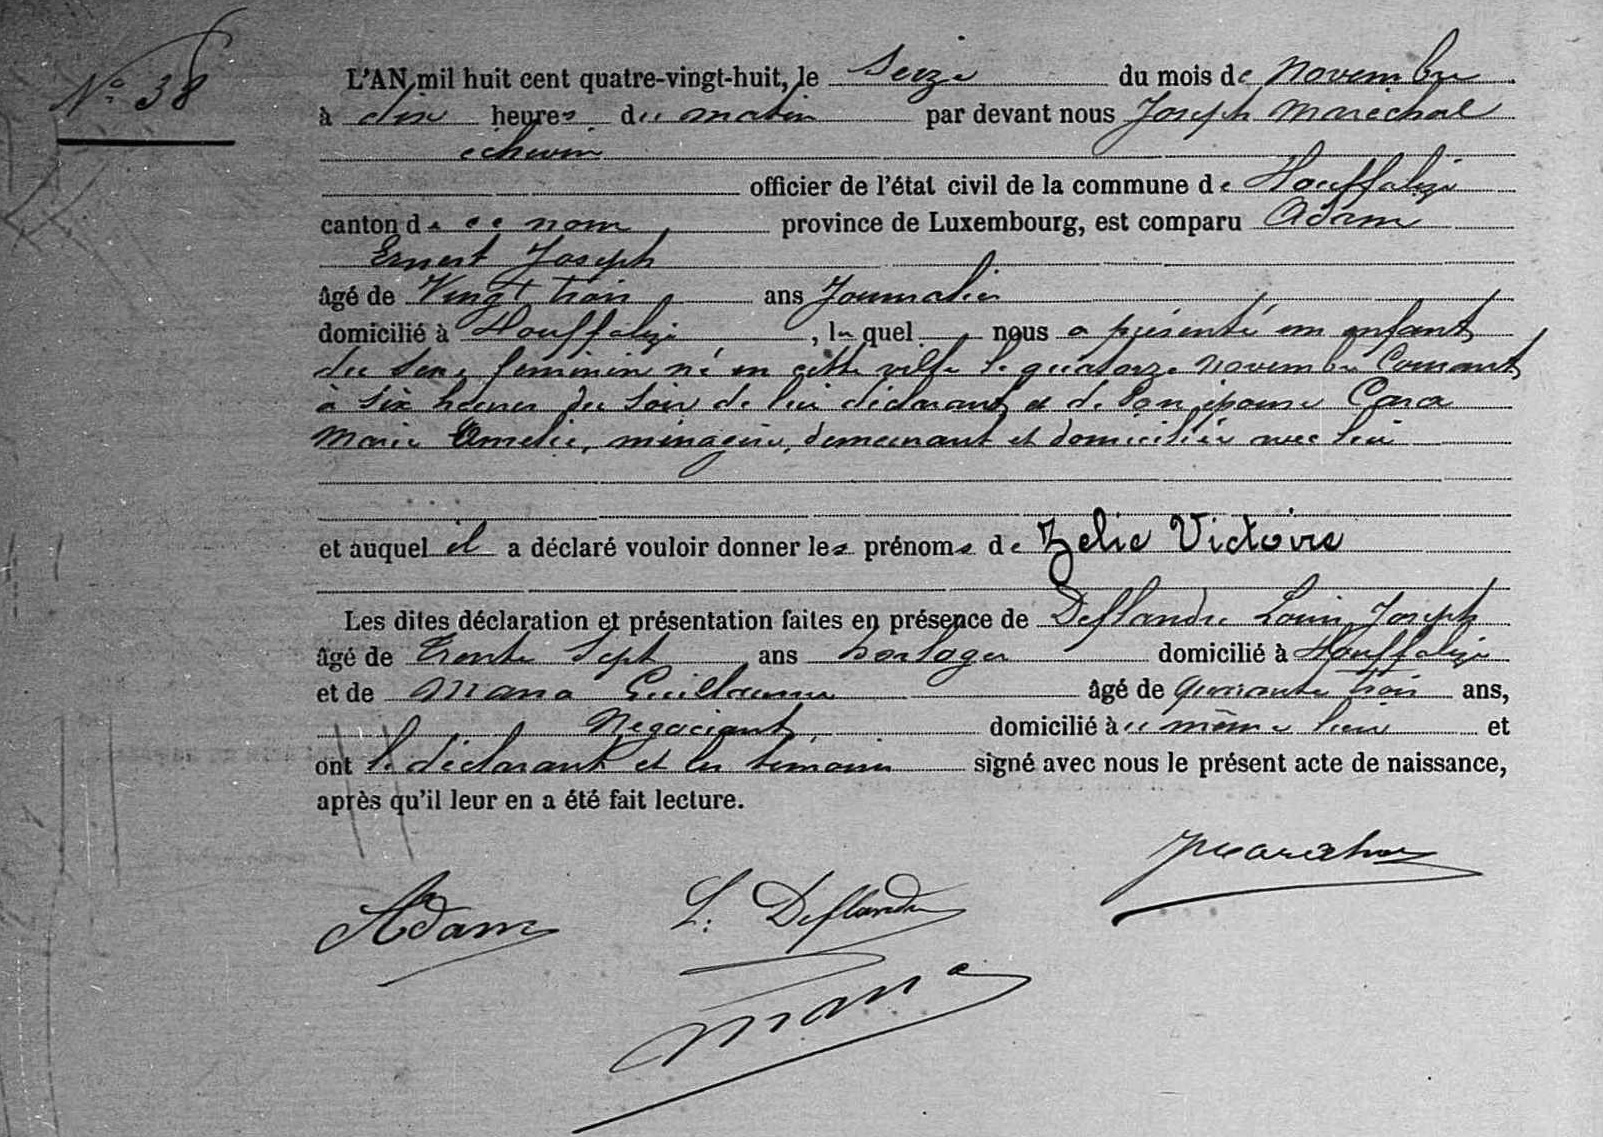 N° 38
L'AN mil huit cent quatre-vingt-huit, le Seize du mois de Novembre
à dix heures du matin par devant nous Joseph Maréchal
échevin
officier de l'état civil de la commune de Houffalize
canton de ce nom province de Luxembourg, est comparu Adam
Ernest Joseph
âgé de Vingt trois ans Journalier
domicilié à Houffalize, lequel nous a présenté un enfant
du sexe féminin né en cette ville le quatorze novembre Courant
à six heures du soir de lui déclarant et de son épouse Cara
Marie Amelie, ménagère, demeurant et domiciliée avec lui
et auquel il a déclaré vouloir donner les prénoms de Zelie Victoire
Les dites déclaration et présentation faites en présence de Deflandre Louis Joseph
âgé de Trente Sept ans horloger domicilié à Houffalize
et de Mana Guillaume âgé de quarante trois ans,
Négociant, domicilié au même lieu et
ont le déclarant et les témoins signé avec nous le présent acte de naissance,
après qu'il leur en a été fait lecture.
JMaréchal
Adam
L. Deflandre
Mana